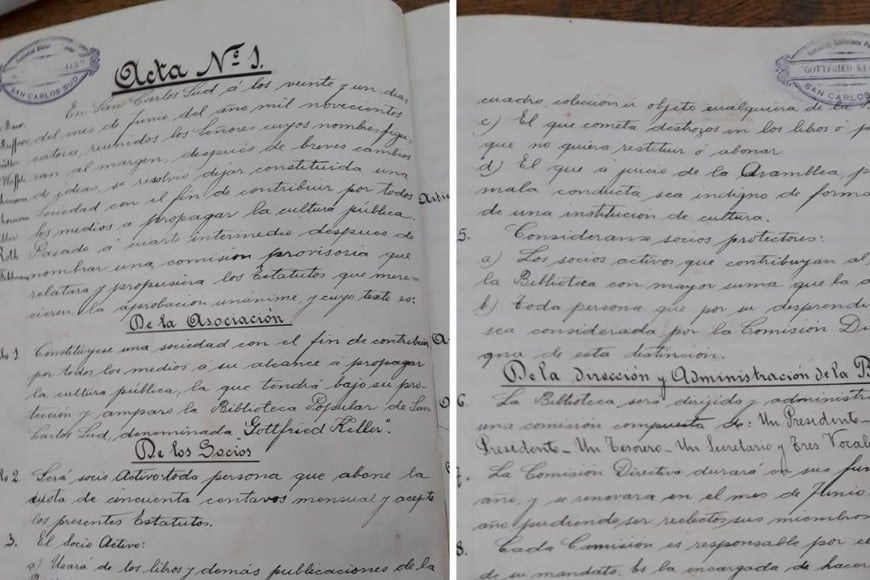 Acta Nº 1.
En San Carlos Sud á los veinte y un dias
del mes de Junio del año mil novecientos
catorce, reunidos los Señores cuyos nombres figu-
ran al margen, después de breves cambios
de ideas, se resolvió dejar constituida una
Sociedad con el fin de contribuir por todos
los medios a propagar la cultura pública.
Pasado á cuarto intermedio despues de
nombrar una comision provisoria que
relatara y propusiera los Estatutos que mere-
cieron la aprobacion unánime, y cuyo texto es:
De la Asociación
1 Constitúyese una sociedad con el fin de contribuir
por todos los medios a su alcance á propagar
la cultura pública, la que tendrá bajo su pro-
tección y amparo la Biblioteca Popular de San
Carlos Sud, denominada "Gottfried Keller".
De los Socios
2 Será socio Activo toda persona que abone la
cuota de cincuenta centavos mensual y acepte
los presentes Estatutos.
3. El Socio Activo:
a) Usará de los libros y demás publicaciones de la
SAN CARLOS SUD
cuadro, colección ú objeto cualquiera de la
c) El que cometa destrozos en los libros ó
que no quiera restituir ó abonar
d) El que á juicio de la Asamblea,
mala conducta sea indigno de forma
de una institución de cultura.
5. Consideranse socios protectores:
a) Los socios activos que contribuyan al
la Biblioteca con mayor suma que la
b) Toda persona que por su desprendi
sea considerada por la Comisión Di
gna de esta distinción.
De la Dirección y Administración de la B
6. La Biblioteca será dirigida y administra
una comisión compuesta de: Un Presidente-
Presidente - Un Tesorero - Un Secretario y Tres Vocale
7. La Comisión Directiva durará en sus fun
año, y se renovara en el mes de Junio
año pudiendo ser reelectos sus miembros
8. Cada Comision es responsable por el
de su mandato. Es la encargada de hacer
"GOTTFRIED KE
SAN CARLOS